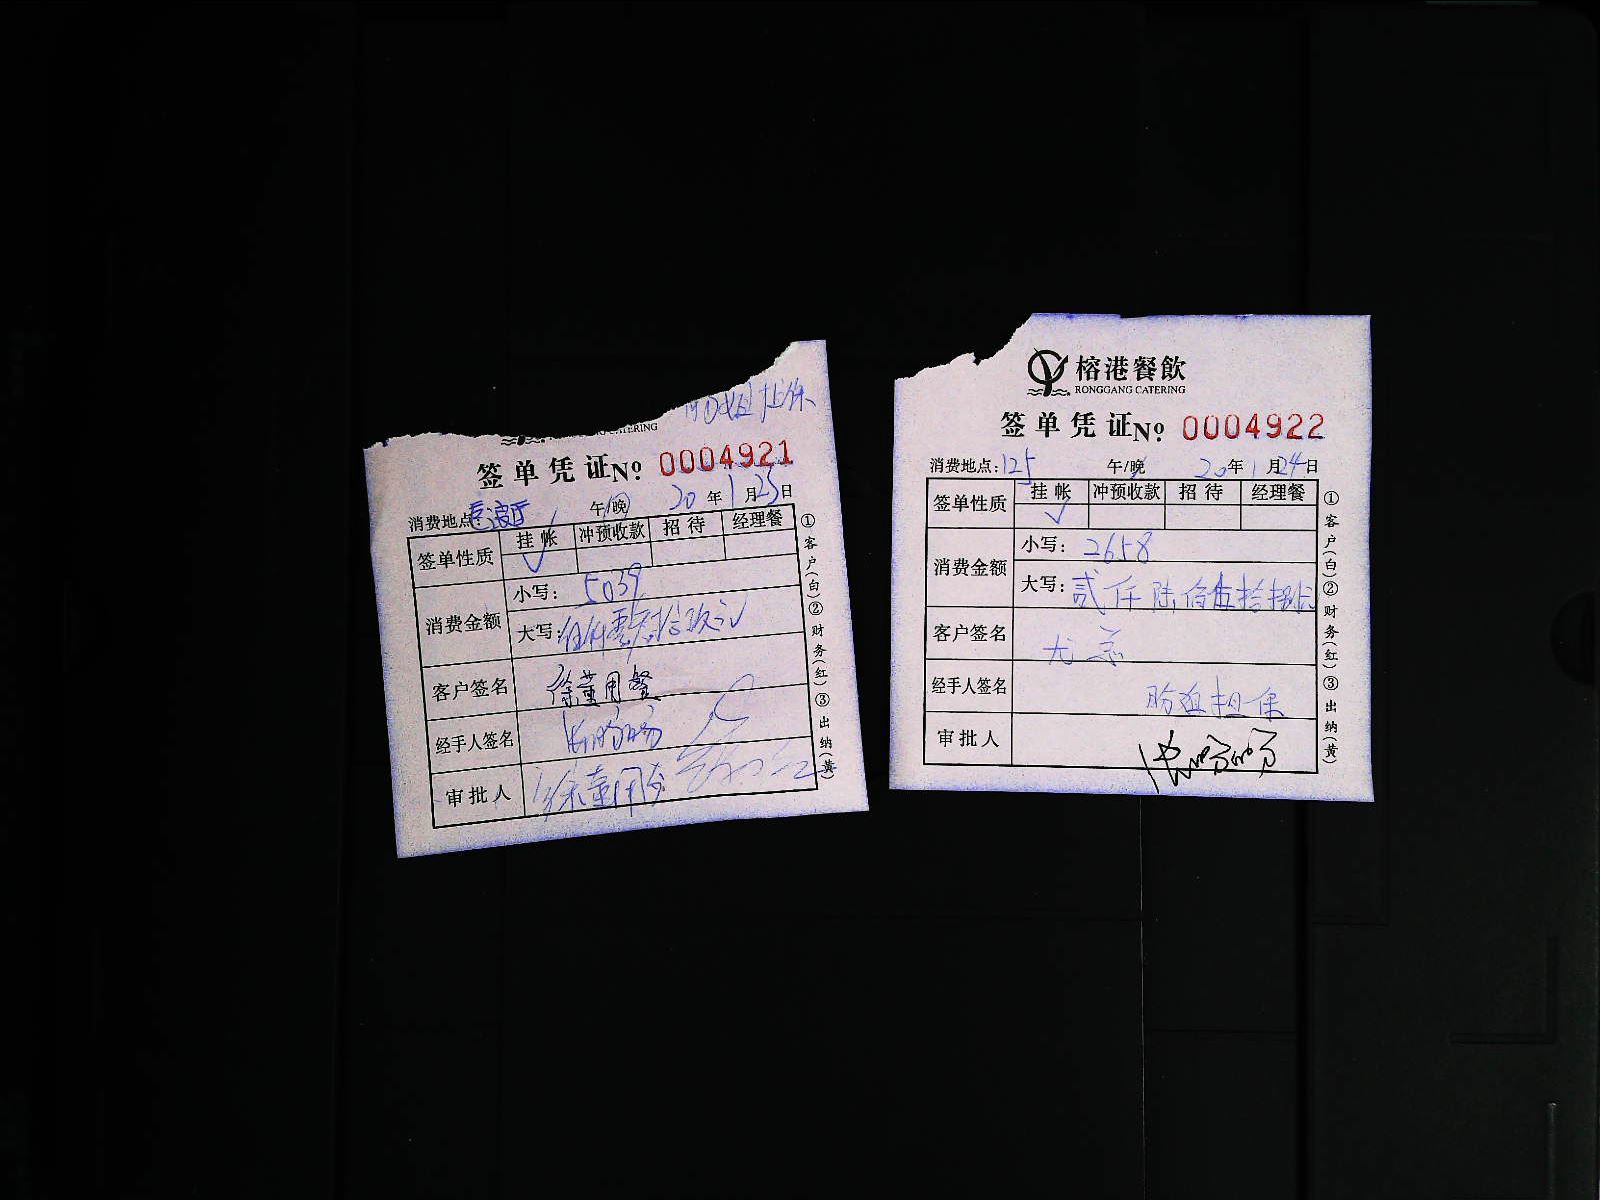 担保
CATERING
签单凭证 No 0004921
消费地点: 午/晚 20年1月25日
签单性质 挂帐 冲预收款 招待 经理餐
✓
消费金额 小写: 5039
大写: 伍仟零叁拾玖元
客户签名 徐董用餐
经手人签名
审批人 徐董用
①客户(白)②财务(红)③出纳(黄)
榕港餐飲
RONGGANG CATERING
签单凭证 No 0004922
消费地点: 125 午/晚 20年1月24日
签单性质 挂帐 冲预收款 招待 经理餐
✓
消费金额 小写: 2658
大写: 贰仟陆佰伍拾捌元
客户签名 尤总
经手人签名 担保
审批人
①客户(白)②财务(红)③出纳(黄)